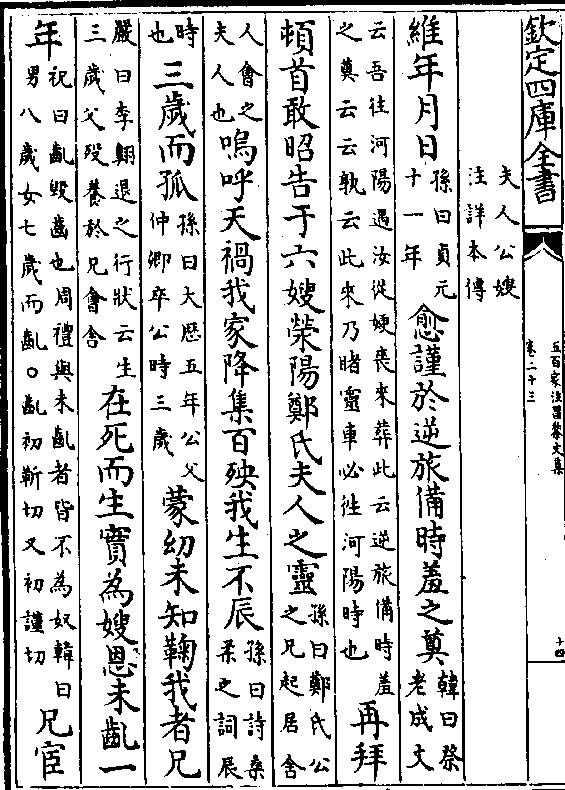 欽定四庫全書
五百家注昌黎文集
卷二十三
十四
夫人公嫂
注詳本傳
維年月日
孫曰貞元
十一年
愈謹於逆旅備時羞之奠
韓曰祭
老成文
云吾往河陽遇汝從嫂喪來葬此云逆旅備時羞
之奠云云孰云此來乃睹靈車必往河陽時也
再拜
頓首敢昭告于六嫂滎陽鄭氏夫人之靈
孫曰鄭氏公
之兄起居舍
人會之
夫人也
嗚呼天禍我家降集百殃我生不辰
孫曰詩桑
柔之詞辰
時
也
三歲而孤
孫曰大歴五年公父
仲卿卒公時三歲
蒙幼未知鞠我者兄
嚴曰李翺退之行狀云生
三歲父殁養於兄會舍
在死而生實為嫂恩未齔一
年
祝曰齔毁齒也周禮與未齔者皆不為奴韓曰
男八歲女七歲而齔○齔初靳切又初謹切
兄宦